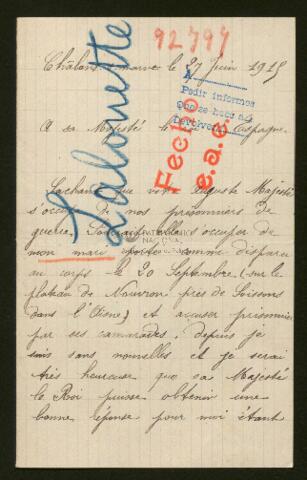 92797
Châlons s/ marne le 27 Juin 1915
Pedir informes
Lalouette
Fecho
e.a.c.
A sa Majesté le Roi d'Espagne
Sachant que votre Auguste Majesté
s'occupe de nos prisonniers de
guerre. Pourrait-elle s'occuper de
mon mari porté comme disparu
au corps le 20 Septembre (sur le
plateau de Nouvron près de Soissons
dans l'Oisne) et accuser prisonnier
par ses camarades. depuis je
suis sans nouvelles et je serai
très heureuse que sa Majesté
le Roi puisse obtenir une
bonne réponse pour moi étant